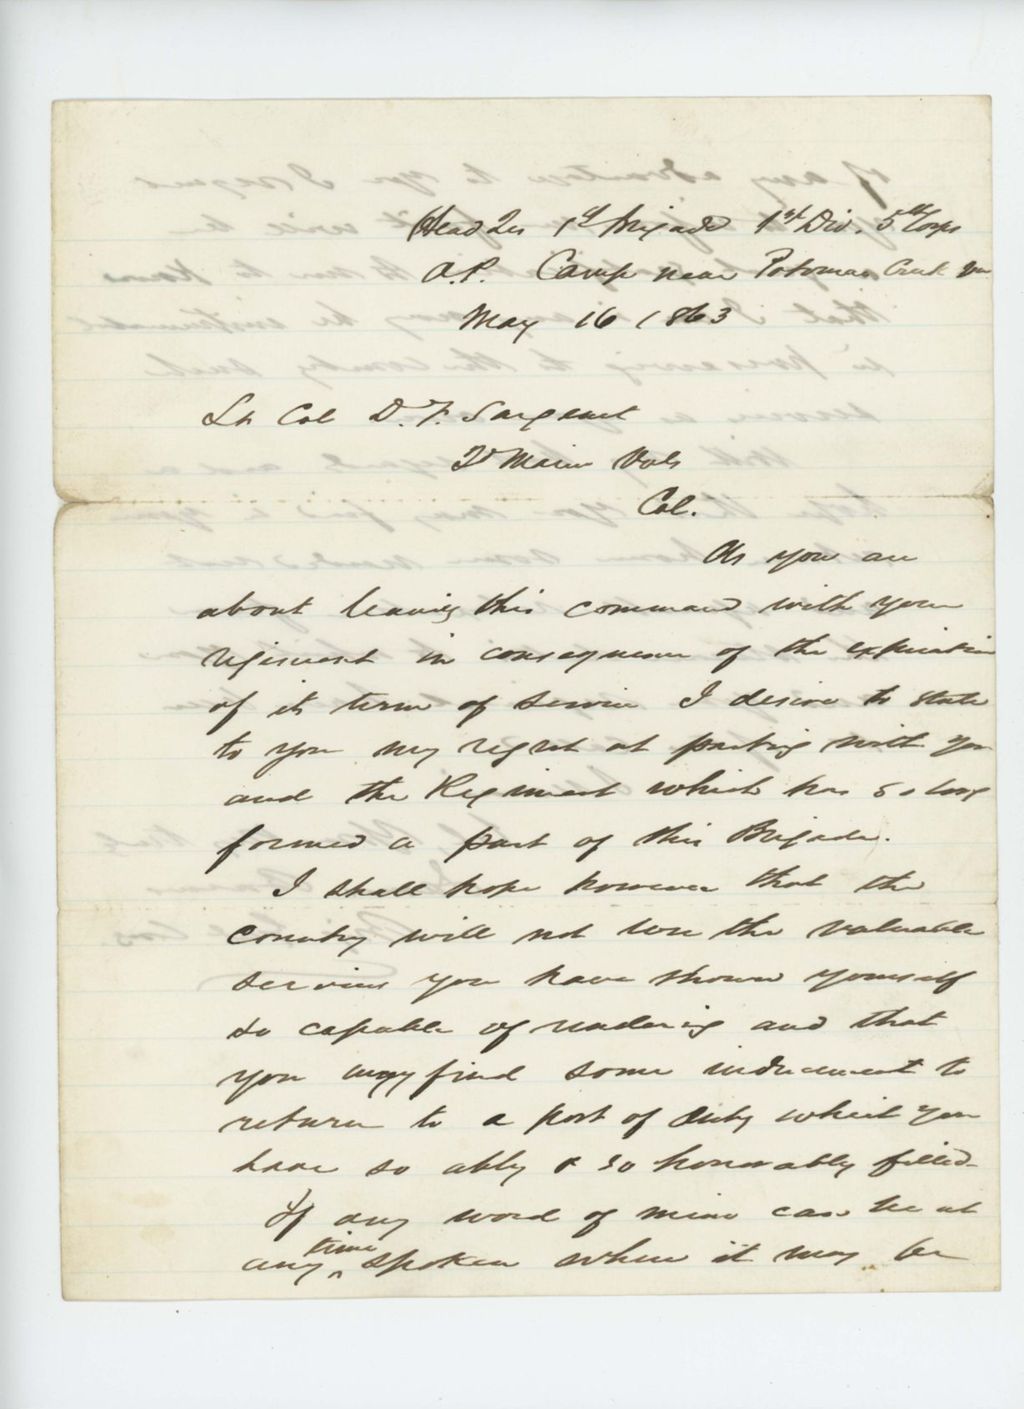 Head Qrs 1st Brigade 1st Div. 5th Corps
A.P. Camp near Potomac Creek Va
May 16 1863
Lt Col D. F. Sargent
2d Maine Vols
Col.
As you are
about leaving this command with your
regiment in consequence of the expiration
of its term of service I desire to state
to you my regret at parting with you
and the Regiment which has so long
formed a part of this Brigade.
I shall hope however that the
country will not lose the valuable
services you have shown yourself
so capable of rendering and that
you may find some inducement to
return to a post of duty which you
have so ably & so honorably filled.
If any word of mine can be at
any time spoken where it may be